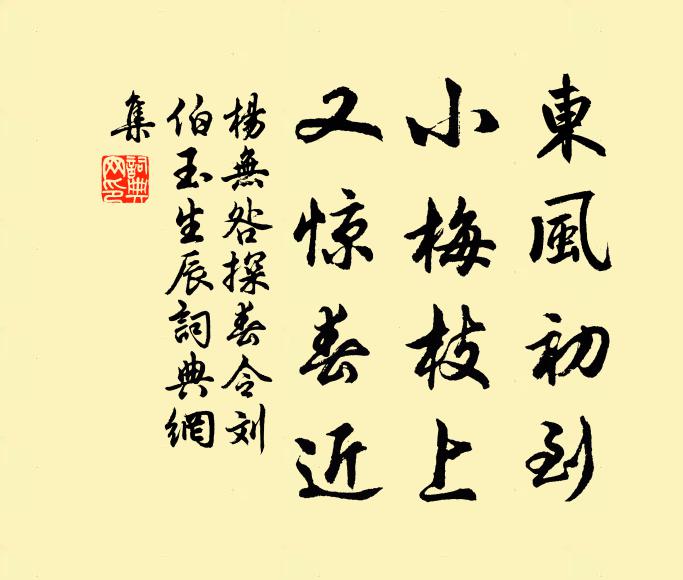 東風初到
小梅枝上
又惊春近
楊無咎探春令刘
伯玉生辰詞典網
集
詞典網印